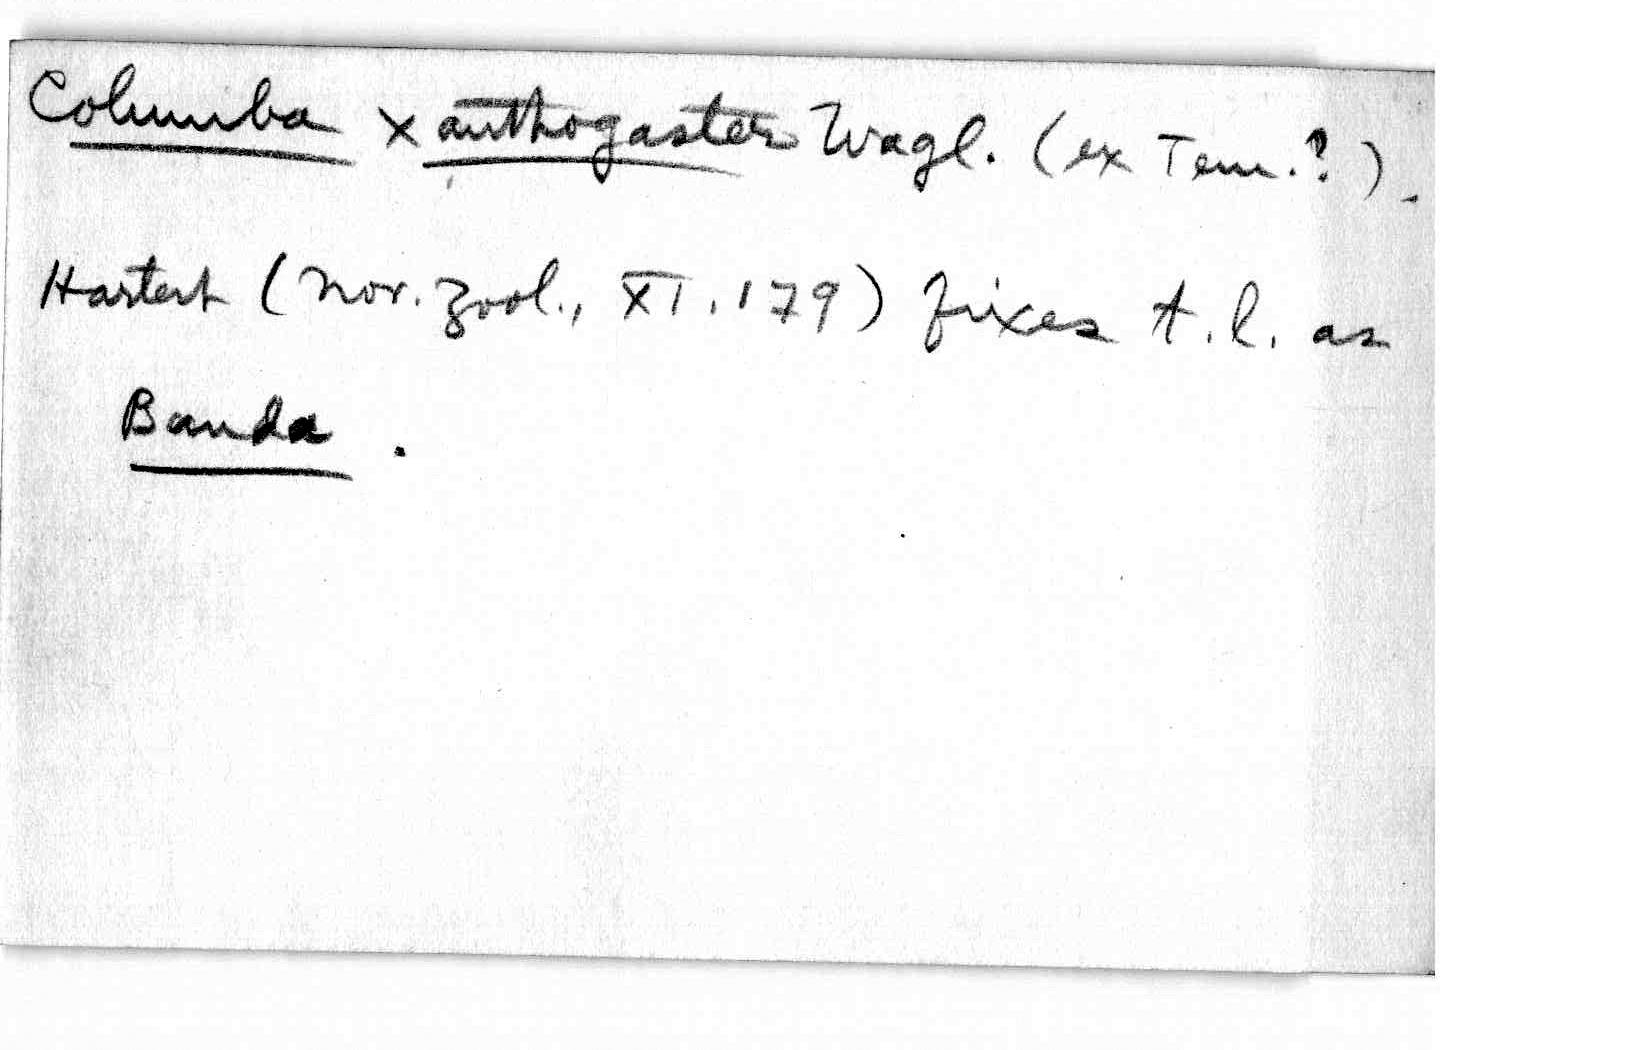 Columba xanthogaster Wagl. (ex Tem.?).
Hartert (Nov. Zool., XI. 179) fixes t.l. as
Banda.